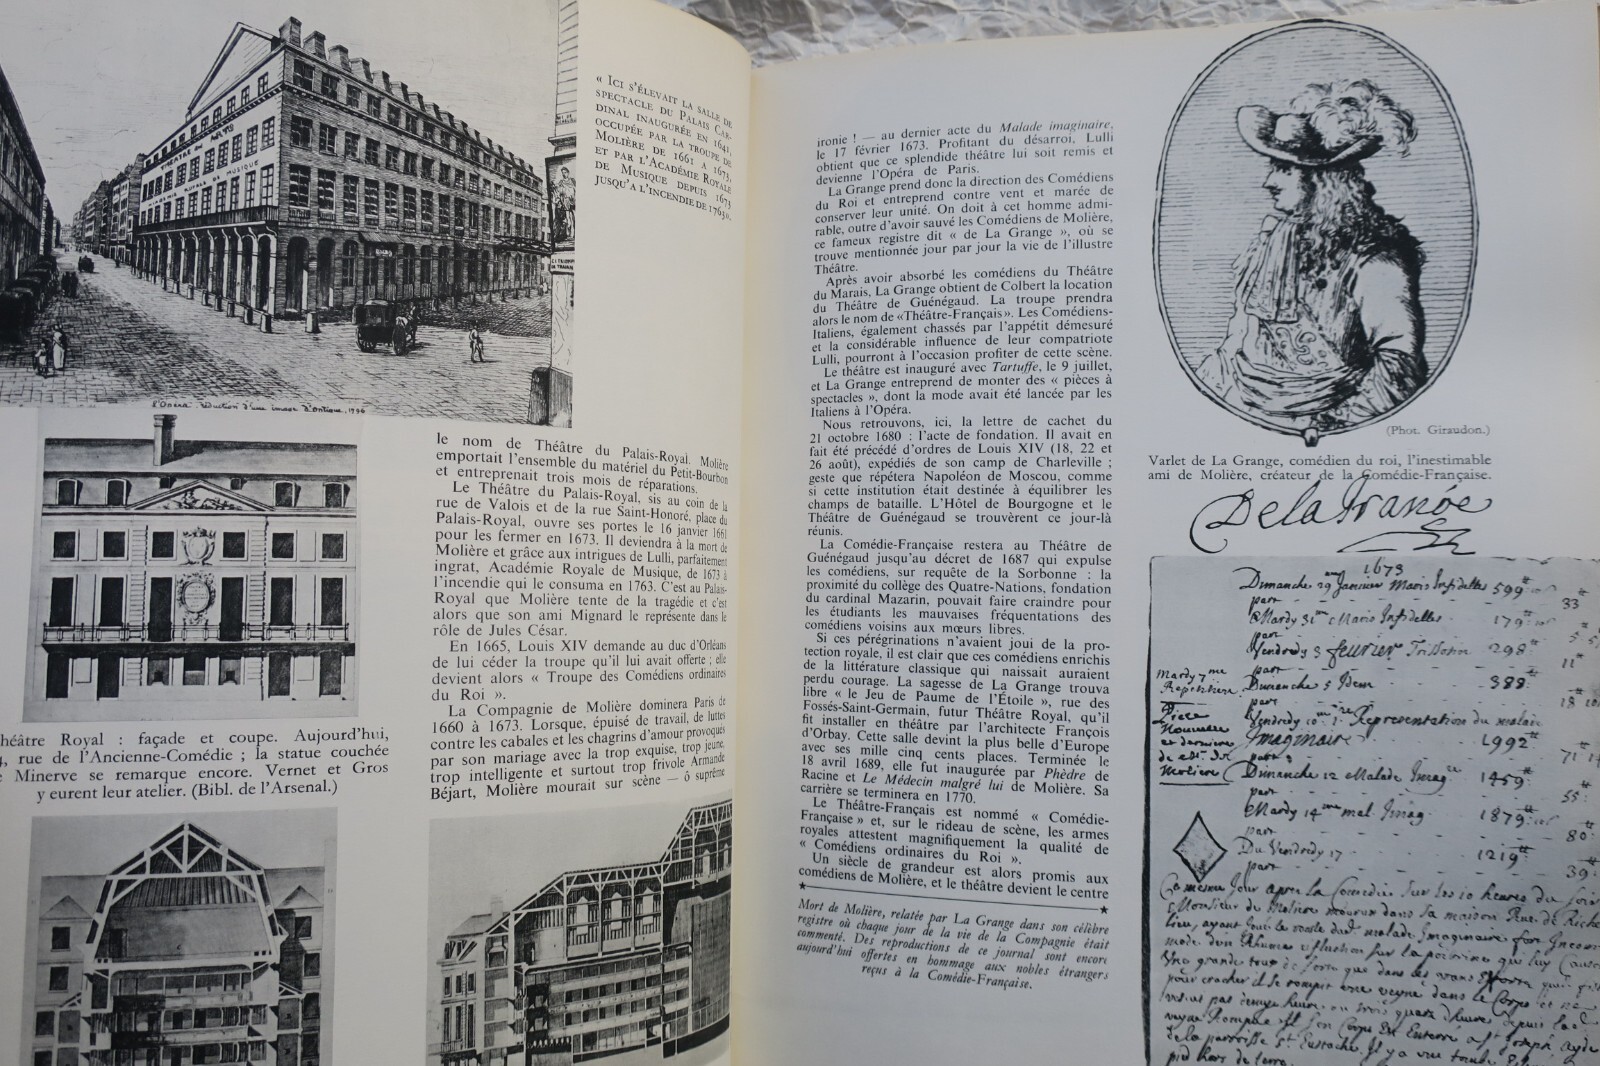 THÉATRE DU
« ICI S'ÉLEVAIT LA SALLE DE
SPECTACLE DU PALAIS CAR-
DINAL INAUGURÉE EN 1641,
OCCUPÉE PAR LA TROUPE DE
MOLIÈRE DE 1661 A 1673,
ET PAR L'ACADÉMIE ROYALE
DE MUSIQUE DEPUIS 1673
JUSQU'A L'INCENDIE DE 1763».
le nom de Théâtre du Palais-Royal. Molière
emportait l'ensemble du matériel du Petit-Bourbon
et entreprenait trois mois de réparations.
Le Théâtre du Palais-Royal, sis au coin de la
rue de Valois et de la rue Saint-Honoré, place du
Palais-Royal, ouvre ses portes le 16 janvier 1661
pour les fermer en 1673. Il deviendra à la mort de
Molière et grâce aux intrigues de Lulli, parfaitement
ingrat, Académie Royale de Musique, de 1673 à
l'incendie qui le consuma en 1763. C'est au Palais-
Royal que Molière tente de la tragédie et c'est
alors que son ami Mignard le représente dans le
rôle de Jules César.
En 1665, Louis XIV demande au duc d'Orléans
de lui céder la troupe qu'il lui avait offerte ; elle
devient alors « Troupe des Comédiens ordinaires
du Roi ».
La Compagnie de Molière dominera Paris de
1660 à 1673. Lorsque, épuisé de travail, de luttes
contre les cabales et les chagrins d'amour provoqués
par son mariage avec la trop exquise, trop jeune,
trop intelligente et surtout trop frivole Armande
Béjart, Molière mourait sur scène — ô suprême
héâtre Royal : façade et coupe. Aujourd'hui,
4, rue de l'Ancienne-Comédie ; la statue couchée
e Minerve se remarque encore. Vernet et Gros
y eurent leur atelier. (Bibl. de l'Arsenal.)
ironie ! — au dernier acte du Malade imaginaire,
le 17 février 1673. Profitant du désarroi, Lulli
obtient que ce splendide théâtre lui soit remis et
devienne l'Opéra de Paris.
La Grange prend donc la direction des Comédiens
du Roi et entreprend contre vent et marée de
conserver leur unité. On doit à cet homme admi-
rable, outre d'avoir sauvé les Comédiens de Molière,
ce fameux registre dit « de La Grange », où se
trouve mentionnée jour par jour la vie de l'illustre
Théâtre.
Après avoir absorbé les comédiens du Théâtre
du Marais, La Grange obtient de Colbert la location
du Théâtre de Guénégaud. La troupe prendra
alors le nom de «Théâtre-Français». Les Comédiens-
Italiens, également chassés par l'appétit démesuré
et la considérable influence de leur compatriote
Lulli, pourront à l'occasion profiter de cette scène.
Le théâtre est inauguré avec Tartuffe, le 9 juillet,
et La Grange entreprend de monter des « pièces à
spectacles », dont la mode avait été lancée par les
Italiens à l'Opéra.
Nous retrouvons, ici, la lettre de cachet du
21 octobre 1680 : l'acte de fondation. Il avait en
fait été précédé d'ordres de Louis XIV (18, 22 et
26 août), expédiés de son camp de Charleville ;
geste que répétera Napoléon de Moscou, comme
si cette institution était destinée à équilibrer les
champs de bataille. L'Hôtel de Bourgogne et le
Théâtre de Guénégaud se trouvèrent ce jour-là
réunis.
La Comédie-Française restera au Théâtre de
Guénégaud jusqu'au décret de 1687 qui expulse
les comédiens, sur requête de la Sorbonne : la
proximité du collège des Quatre-Nations, fondation
du cardinal Mazarin, pouvait faire craindre pour
les étudiants les mauvaises fréquentations des
comédiens voisins aux mœurs libres.
Si ces pérégrinations n'avaient joui de la pro-
tection royale, il est clair que ces comédiens enrichis
de la littérature classique qui naissait auraient
perdu courage. La sagesse de La Grange trouva
libre « le Jeu de Paume de l'Étoile », rue des
Fossés-Saint-Germain, futur Théâtre Royal, qu'il
fit installer en théâtre par l'architecte François
d'Orbay. Cette salle devint la plus belle d'Europe
avec ses mille cinq cents places. Terminée le
18 avril 1689, elle fut inaugurée par Phèdre de
Racine et Le Médecin malgré lui de Molière. Sa
carrière se terminera en 1770.
Le Théâtre-Français est nommé « Comédie-
Française » et, sur le rideau de scène, les armes
royales attestent magnifiquement la qualité de
« Comédiens ordinaires du Roi ».
Un siècle de grandeur est alors promis aux
comédiens de Molière, et le théâtre devient le centre
Mort de Molière, relatée par La Grange dans son célèbre
registre où chaque jour de la vie de la Compagnie était
commenté. Des reproductions de ce journal sont encore
aujourd'hui offertes en hommage aux nobles étrangers
reçus à la Comédie-Française.
(Phot. Giraudon.)
Varlet de La Grange, comédien du roi, l'inestimable
ami de Molière, créateur de la Comédie-Française.
De la Grange
1673
Dimanche 29 Janvier Maris Infidelles 599
part 33
Mardy 31 Maris Infidelles 179
part
Vendredy 3 feurier Trissotin 298
part 11
Dimanche 5 Idem 388
part 18
Vendredy 10 1 Representation du malade
Imaginaire 1992
Dimanche 12 Malade Imag 1459
part 55
Mardy 14 mal. Imag 1879
part 80
Du Vendredy 17 1219
part 39